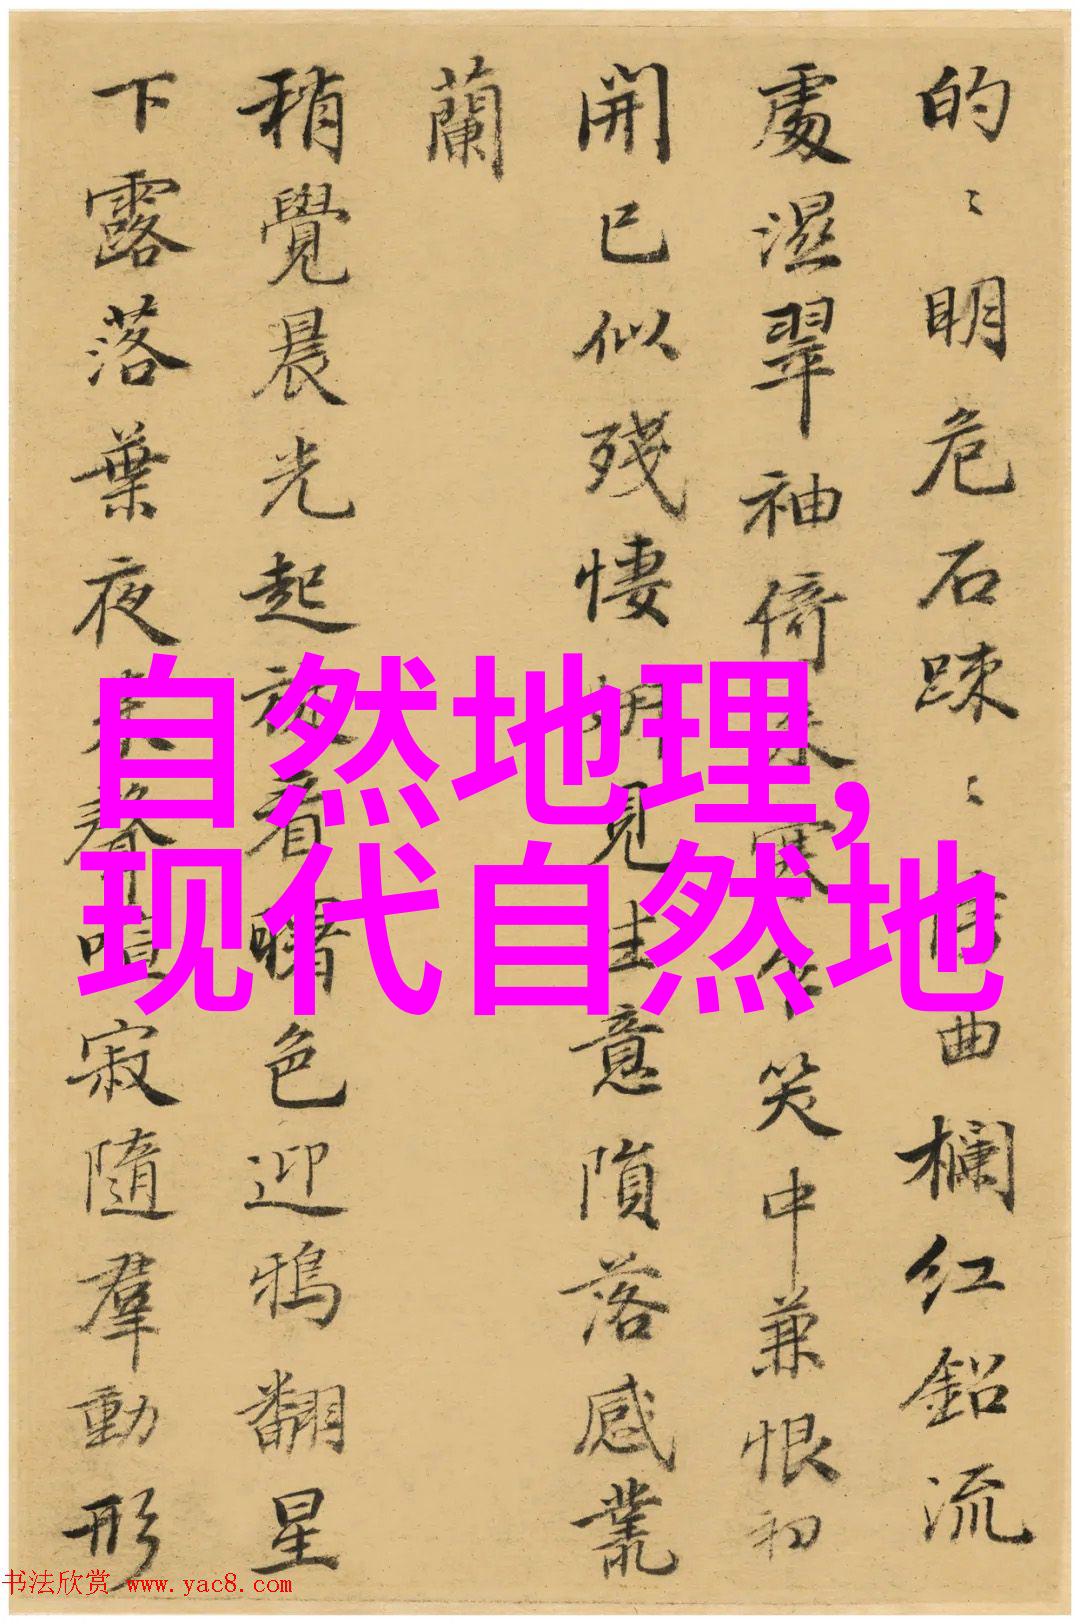 的〻明危石踈〻曲欄红鉛流
處濕翠袖倚来寒乍笑中兼恨初
開已似殘悽明見生意隕落感叢
蘭
稍覺晨光起初看曙色迎鴉翻星
下露落葉夜来聲喧寂隨羣動形
自然地理,
现代自然地
书法欣赏 www.yac8.com